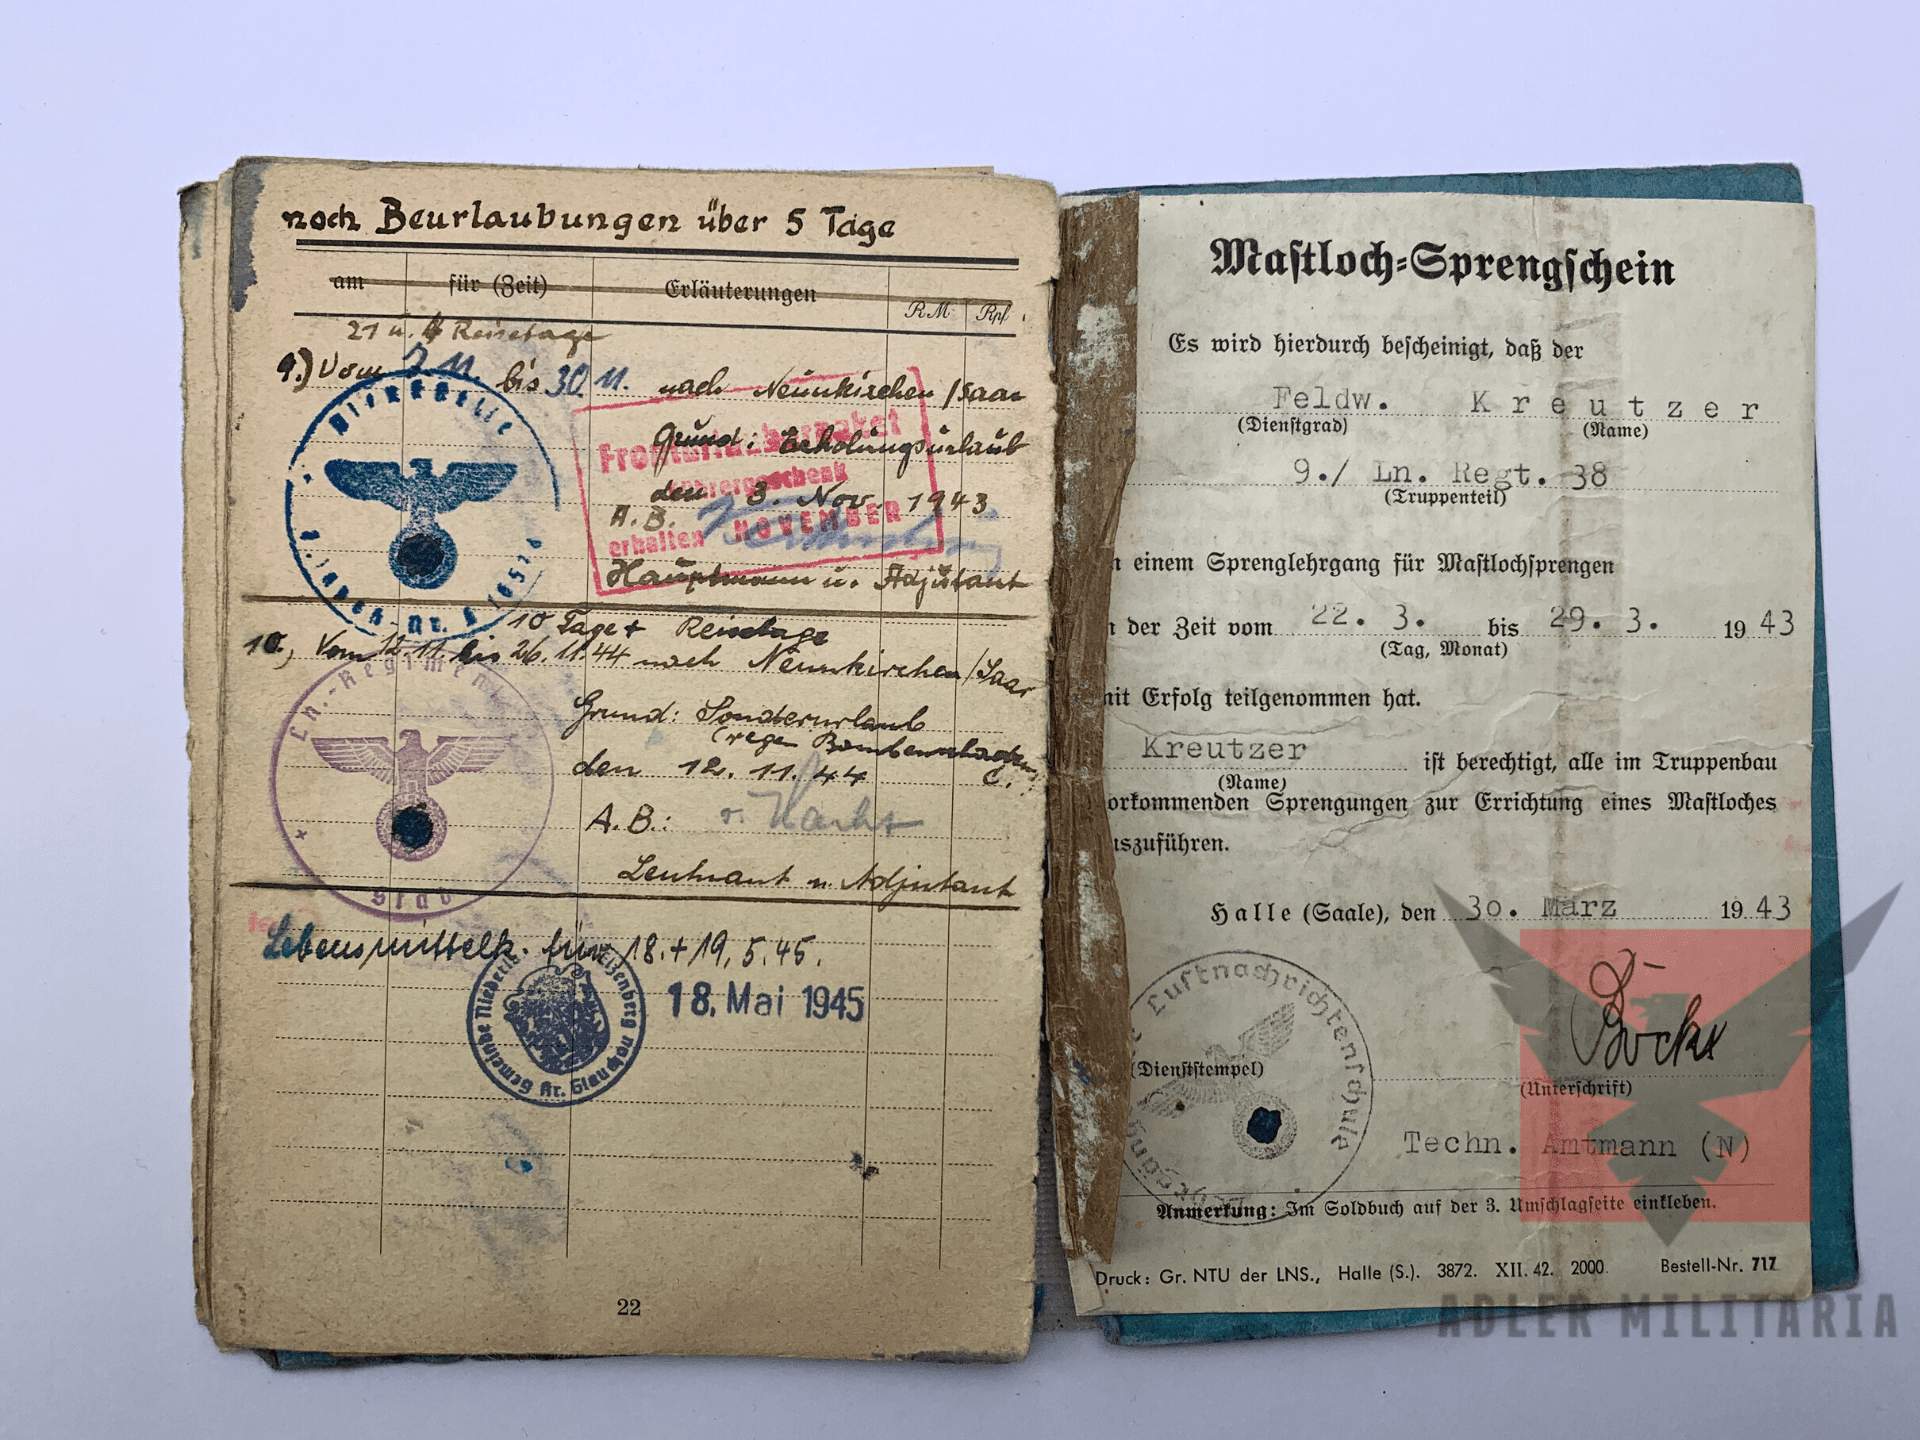 noch Beurlaubungen über 5 Tage
am für (Zeit) Erläuterungen RM Rpf
21 u. 4 Reisetage
9.) Vom 7.11. bis 30.11. nach Neunkirchen/Saar
Grund: Erholungsurlaub
den 3. Nov. 1943
A. B.
Hauptmann u. Adjutant
Dienststelle
Feldpost-Nr.
Führergeschenk
erhalten NOVEMBER
10 Tage + Reisetage
10., Vom 12.11. bis 26.11.44 nach Neunkirchen/Saar
Grund: Sonderurlaub
(wegen Bombenschaden
den 12.11.44
A.B.:
Leutnant u. Adjutant
Ln.-Regiment
Stab
Lebensmittelk. für 18.+19.5.45.
18. Mai 1945
Gemeinde Kr. Glauchau
22
Mastloch-Sprengschein
Es wird hierdurch bescheinigt, daß der
Feldw. Kreutzer
(Dienstgrad) (Name)
9./ Ln. Regt. 38
(Truppenteil)
n einem Sprenglehrgang für Mastlochsprengen
n der Zeit vom 22. 3. bis 29. 3. 1943
(Tag, Monat)
mit Erfolg teilgenommen hat.
Kreutzer ist berechtigt, alle im Truppenbau
(Name)
vorkommenden Sprengungen zur Errichtung eines Mastloches
uszuführen.
Halle (Saale), den 30. März 1943
Luftnachrichtenschule
(Dienststempel)
(Unterschrift)
Techn. Amtmann (N)
Anmerkung: Im Soldbuch auf der 3. Umschlagseite einkleben.
Druck: Gr. NTU der LNS., Halle (S.). 3872. XII. 42. 2000. Bestell-Nr. 717
ADLER MILITARIA